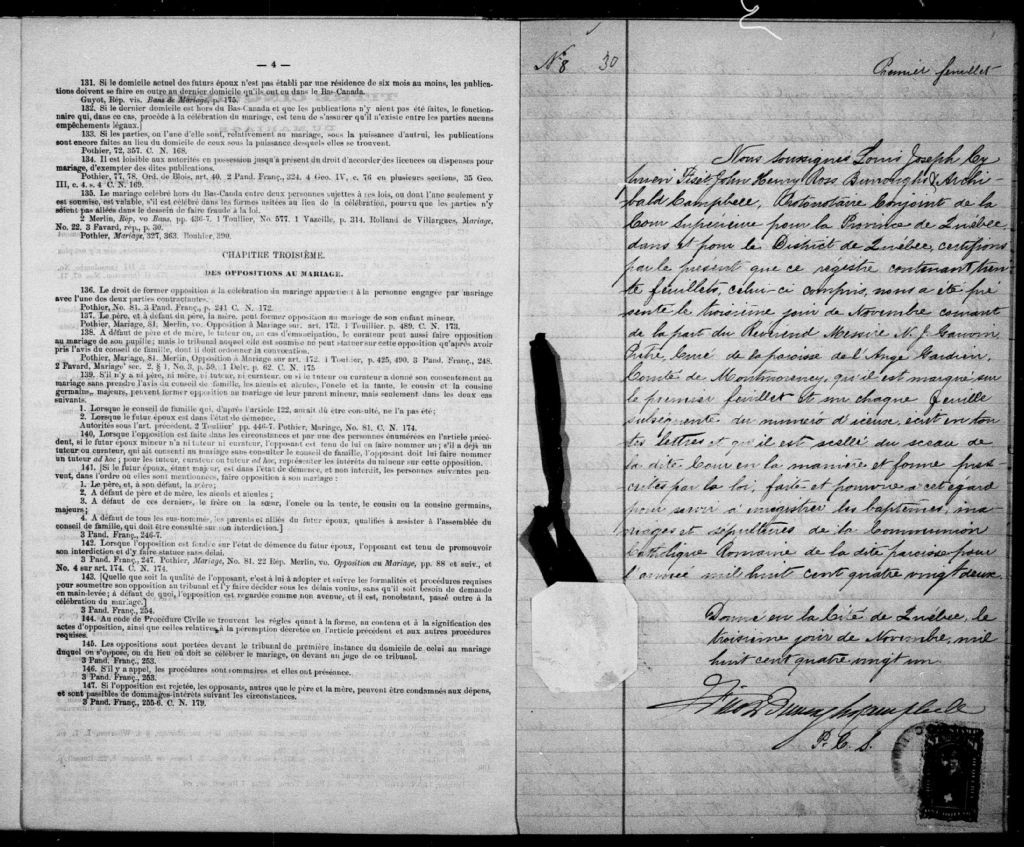 — 4 —
131. Si le domicile actuel des futurs époux n'est pas établi par une résidence de six mois au moins, les publica-
tions doivent se faire en outre au dernier domicile qu'ils ont eu dans le Bas-Canada.
Guyot, Rép. vis. Bans de Mariage, p. 175.
132. Si le dernier domicile est hors du Bas-Canada et que les publications n'y aient pas été faites, le fonction-
naire qui, dans ce cas, procède à la célébration du mariage, est tenu de s'assurer qu'il n'existe entre les parties aucuns
empêchements légaux.]
133. Si les parties, ou l'une d'elle sont, relativement au mariage, sous la puissance d'autrui, les publications
sont encore faites au lieu du domicile de ceux sous la puissance desquels elles se trouvent.
Pothier, 72, 357. C. N. 168.
134. Il est loisible aux autorités en possession jusqu'à présent du droit d'accorder des licences ou dispenses pour
mariage, d'exempter des dites publications.
Pothier, 77, 78. Ord. de Blois, art. 40. 2 Pand. Franç., 324. 4 Geo. IV, c. 76 en plusieurs sections, 35 Geo.
III, c. 4. s. 4 C. N. 169.
135. Le mariage célébré hors du Bas-Canda entre deux personnes sujettes à ses lois, ou dont l'une seulement y
est soumise, est valable, s'il est célébré dans les formes usitées au lieu de la célébration, pourvu que les parties n'y
soient pas allées dans le dessein de faire fraude à la loi.
2 Merlin, Rép, vo Bans, pp. 436-7. 1 Toullier, No. 577. 1 Vazeille, p. 314. Rolland de Villargues, Mariage,
No. 22. 3 Favard, rép., p. 30.
Pothier, Mariage, 327, 363. Bouhier, 390.
CHAPITRE TROISIÈME.
DES OPPOSITIONS AU MARIAGE.
136. Le droit de former opposition à la célébration du mariage appartient à la personne engagée par mariage
avec l'une des deux parties contractantes.
Pothier, No. 81. 3 Pand. Franç., p. 241 C. N. 172.
137. Le père, et à défaut du père, la mère, peut former opposition au mariage de son enfant mineur.
Pothier, Mariage, 81. Merlin, vo. Opposition à Mariage sur. art. 173. 1 Touillier, p. 489. C. N. 173.
138. A défaut de père et de mère, le tuteur ou, en cas d'émancipation, le curateur peut aussi faire opposition
au mariage de son pupille; mais le tribunal auquel elle est soumise ne peut statuer sur cette opposition qu'après avoir
pris l'avis du conseil de famille, dont il doit ordonner la convocation.
Pothier, Mariage, 81. Merlin, Opposition à Mariage sur art. 172. 1 Toullier, p. 425, 490. 3 Pand. Franç., 248.
2 Favard, Mariage' sec. 2. § 1, No. 3, p. 59. 1 Delv. p. 62. C. N. 175
139. S'il n'y a ni père, ni mère, ni tuteur, ni curateur, ou si le tuteur ou curateur a donné son consentement au
mariage sans prendre l'avis du conseil de famille, les aïeuls et aïeules, l'oncle et la tante, le cousin et la cousine
germains, majeurs, peuvent former opposition au mariage de leur parent mineur, mais seulement dans les deux cas
suivants.
1. Lorsque le conseil de famille qui, d'après l'article 122, aurait dû être consulté, ne l'a pas été;
2. Lorsque le futur époux est dans l'état de démence.
Autorités sous l'art. précédent. 2 Toulier' pp. 446-7. Pothier, Mariage, No. 81. C. N. 174.
140. Lorsque l'opposition est faite dans les circonstances et par une des personnes énumérées en l'article précé-
dent, si le futur époux mineur n'a ni tuteur ni curateur, l'opposant est tenu de lui en faire nommer un; s'il a déjà un
tuteur ou curateur, qui ait consenti au mariage sans consulter le conseil de famille, l'opposant doit lui faire nommer
un tuteur ad hoc; pour les tuteur, curateur ou tuteur ad hoc, représenter les intérêts du mineur sur cette opposition.
141. [Si le futur époux, étant majeur, est dans l'état de démence, et non interdit, les personnes suivantes peu-
vent, dans l'ordre où elles sont mentionnées, faire opposition à son mariage:
1. Le père, et, à son défaut, la mère;
2. A défaut de père et de mère, les aïeuls et aïeules;
3. A défaut de ces derniers, le frère ou la sœur, l'oncle ou la tente, le cousin ou la cousine germains,
majeurs;
4. A défaut de tous les sus-nommés, les parents et alliés du futur époux, qualifiés à assister à l'assemblée du
conseil de famille, qui doit être consultée sur son interdiction.]
3 Pand. Franç., 246-7.
142. Lorsque l'opposition est fondée sur l'état de démence du futur époux, l'opposant est tenu de promouvoir
son interdiction et d'y faire statuer sans délai.
3 Pand. Franç., 247. Pothier, Mariage, No. 81. 22 Rép. Merlin, vo. Opposition au Mariage, pp. 88 et suiv., et
No. 4 sur art. 174. C. N. 174.
143. [Quelle que soit la qualité de l'opposant, c'est à lui à adopter et suivre les formalités et procédures requises
pour soumettre son opposition au tribunal et l'y faire décider sous les délais voulus, sans qu'il soit besoin de demande
en main-levée; à défaut de quoi, l'opposition est regardée comme non avenue, et il est, nonobstant, passé outre à la
célébration du mariage.]
3 Pand. Franç., 254.
144. Au code de Procédure Civile se trouvent les règles quant à la forme, au contenu et à la signification des
actes d'opposition, ainsi que celles relatives à la péremption décrétée en l'article précédent et aux autres procédures
requises.
145. Les oppositions sont portées devant le tribunal de première instance du domicile de celui au mariage
duquel on s'oppose, ou du lieu où doit se célébrer le mariage, ou devant un juge de ce tribunal.
3 Pand. Franç., 253.
146. S'il y a appel, les procédures sont sommaires et elles ont préséance.
3 Pand. Franç., 253.
147. Si l'opposition est rejetée, les opposants, autres que le père et la mère, peuvent être condamnés aux dépens,
et sont passibles de dommages-intérêts suivant les circonstances.
3 Pand. Franç., 255-6. C. N. 179.
No 8 30
Premier feuillet
Nous soussignés Louis Joseph Cy
prien Fiset John Henry Ross Burroughs & Archi-
bald Campbell, Protonotaire Conjoint de la
Cour Supérieure pour la Province de Québec
dans et pour le District de Québec, certifions
par le présent que ce registre contenant tren-
te feuillets, celui-ci compris, nous a été pré
senté le troisième jour de Novembre courant
de la part du Révérend Messire N. J.
Ptre, Curé de la paroisse de l'Ange Gardien,
Comté de Montmorency, qu'il est marqué sur
le premier feuillet et sur chaque feuille
subséquente du numéro d'iceux, écrit en tou
tes lettres et qu'il est scellé du sceau de
la dite Cour en la manière et forme pres-
crites par la loi, faite et pourvue à cet égard
pour servir à enregistrer les baptêmes, ma-
riages et sépultures de la Communion
Catholique Romaine de la dite paroisse pour
l'année mil huit cent quatre vingt deux
Donné en la Cité de Québec, le
troisième jour de Novembre, mil
huit cent quatre vingt un
Fiset Burroughs Campbell
P. C. S.